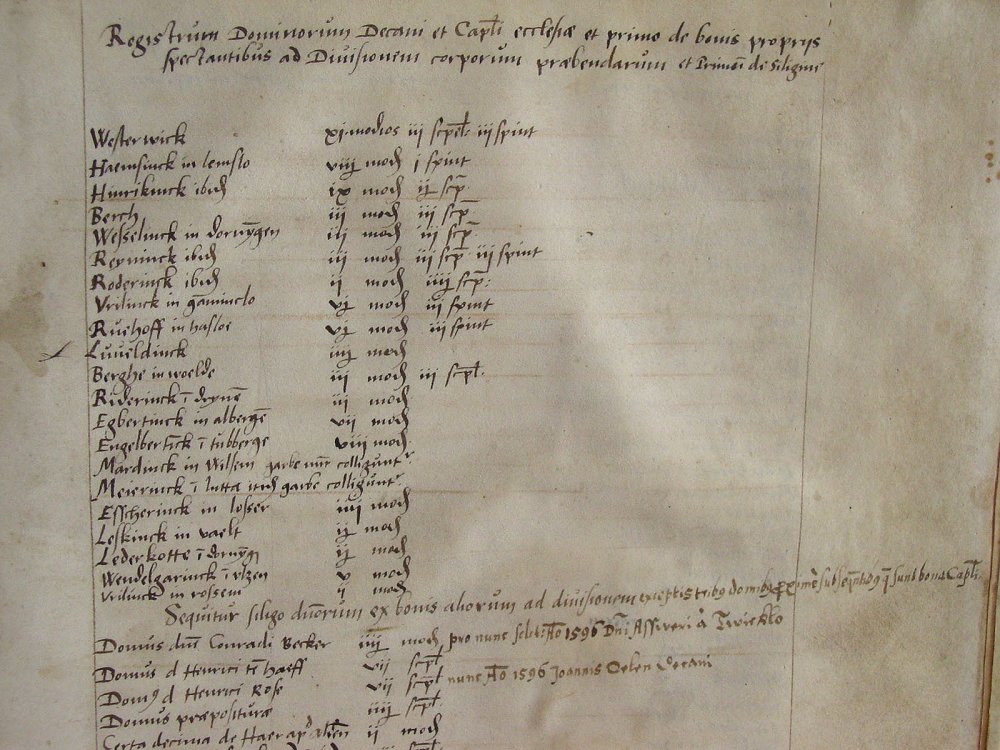 Registrum Dominorum Decani et Capli ecclesiæ et primo de bonis proprijs
spectantibus ad Diuisionem corporum præbendarum et Primū de Siligine
Westerwick xj modios iij scpel: iij spint
Haemsinck in lemslo viij mod j spint
Hinrikinck ibid ix mod ij scp
Berch iij mod iij scp
Wesselinck in dornȳgen iij mod iij scp
Reyninck ibid iij mod iij scp iij spint
Roderinck ibid ij mod iiij scp:
Vrilinck in gāminclo vj mod iij spint
Ruehoff in hasloe vj mod iij spint
Luueldinck iiij mod
Berghe in woelde iij mod iij scpl:
Riderinck ī deynē iij mod
Egbertinck in albergē vij mod
Engelbertick ī tubberge viij mod
Mardinck in Wilsem garbe colligunt
Meierinck ī lutta garbe colligunt
Esscherinck in losser iiij mod
Leskinck in vaelt ij mod
Lederkotte ī dornȳg ij mod
Wendelgarinck ī vlzen v mod
Vrilinck in rossem ij mod
Sequitur siligo duorum ex bonis aliorum ad diuisionem exceptis tribꝰ domibꝰ sunt bona Capli
Domus dnī Conradi Becker iiij mod pro nunc Aō 1596 Dnī Assueri à Twicklo
Domus d Henrici tē haeff vij scpl
Domꝰ d Henrici Rose vij scpl nunc Aō 1596 Joannis Oelen Decani
Domus præposituræ iiij scpl:
Certa decima de Haer ij mod